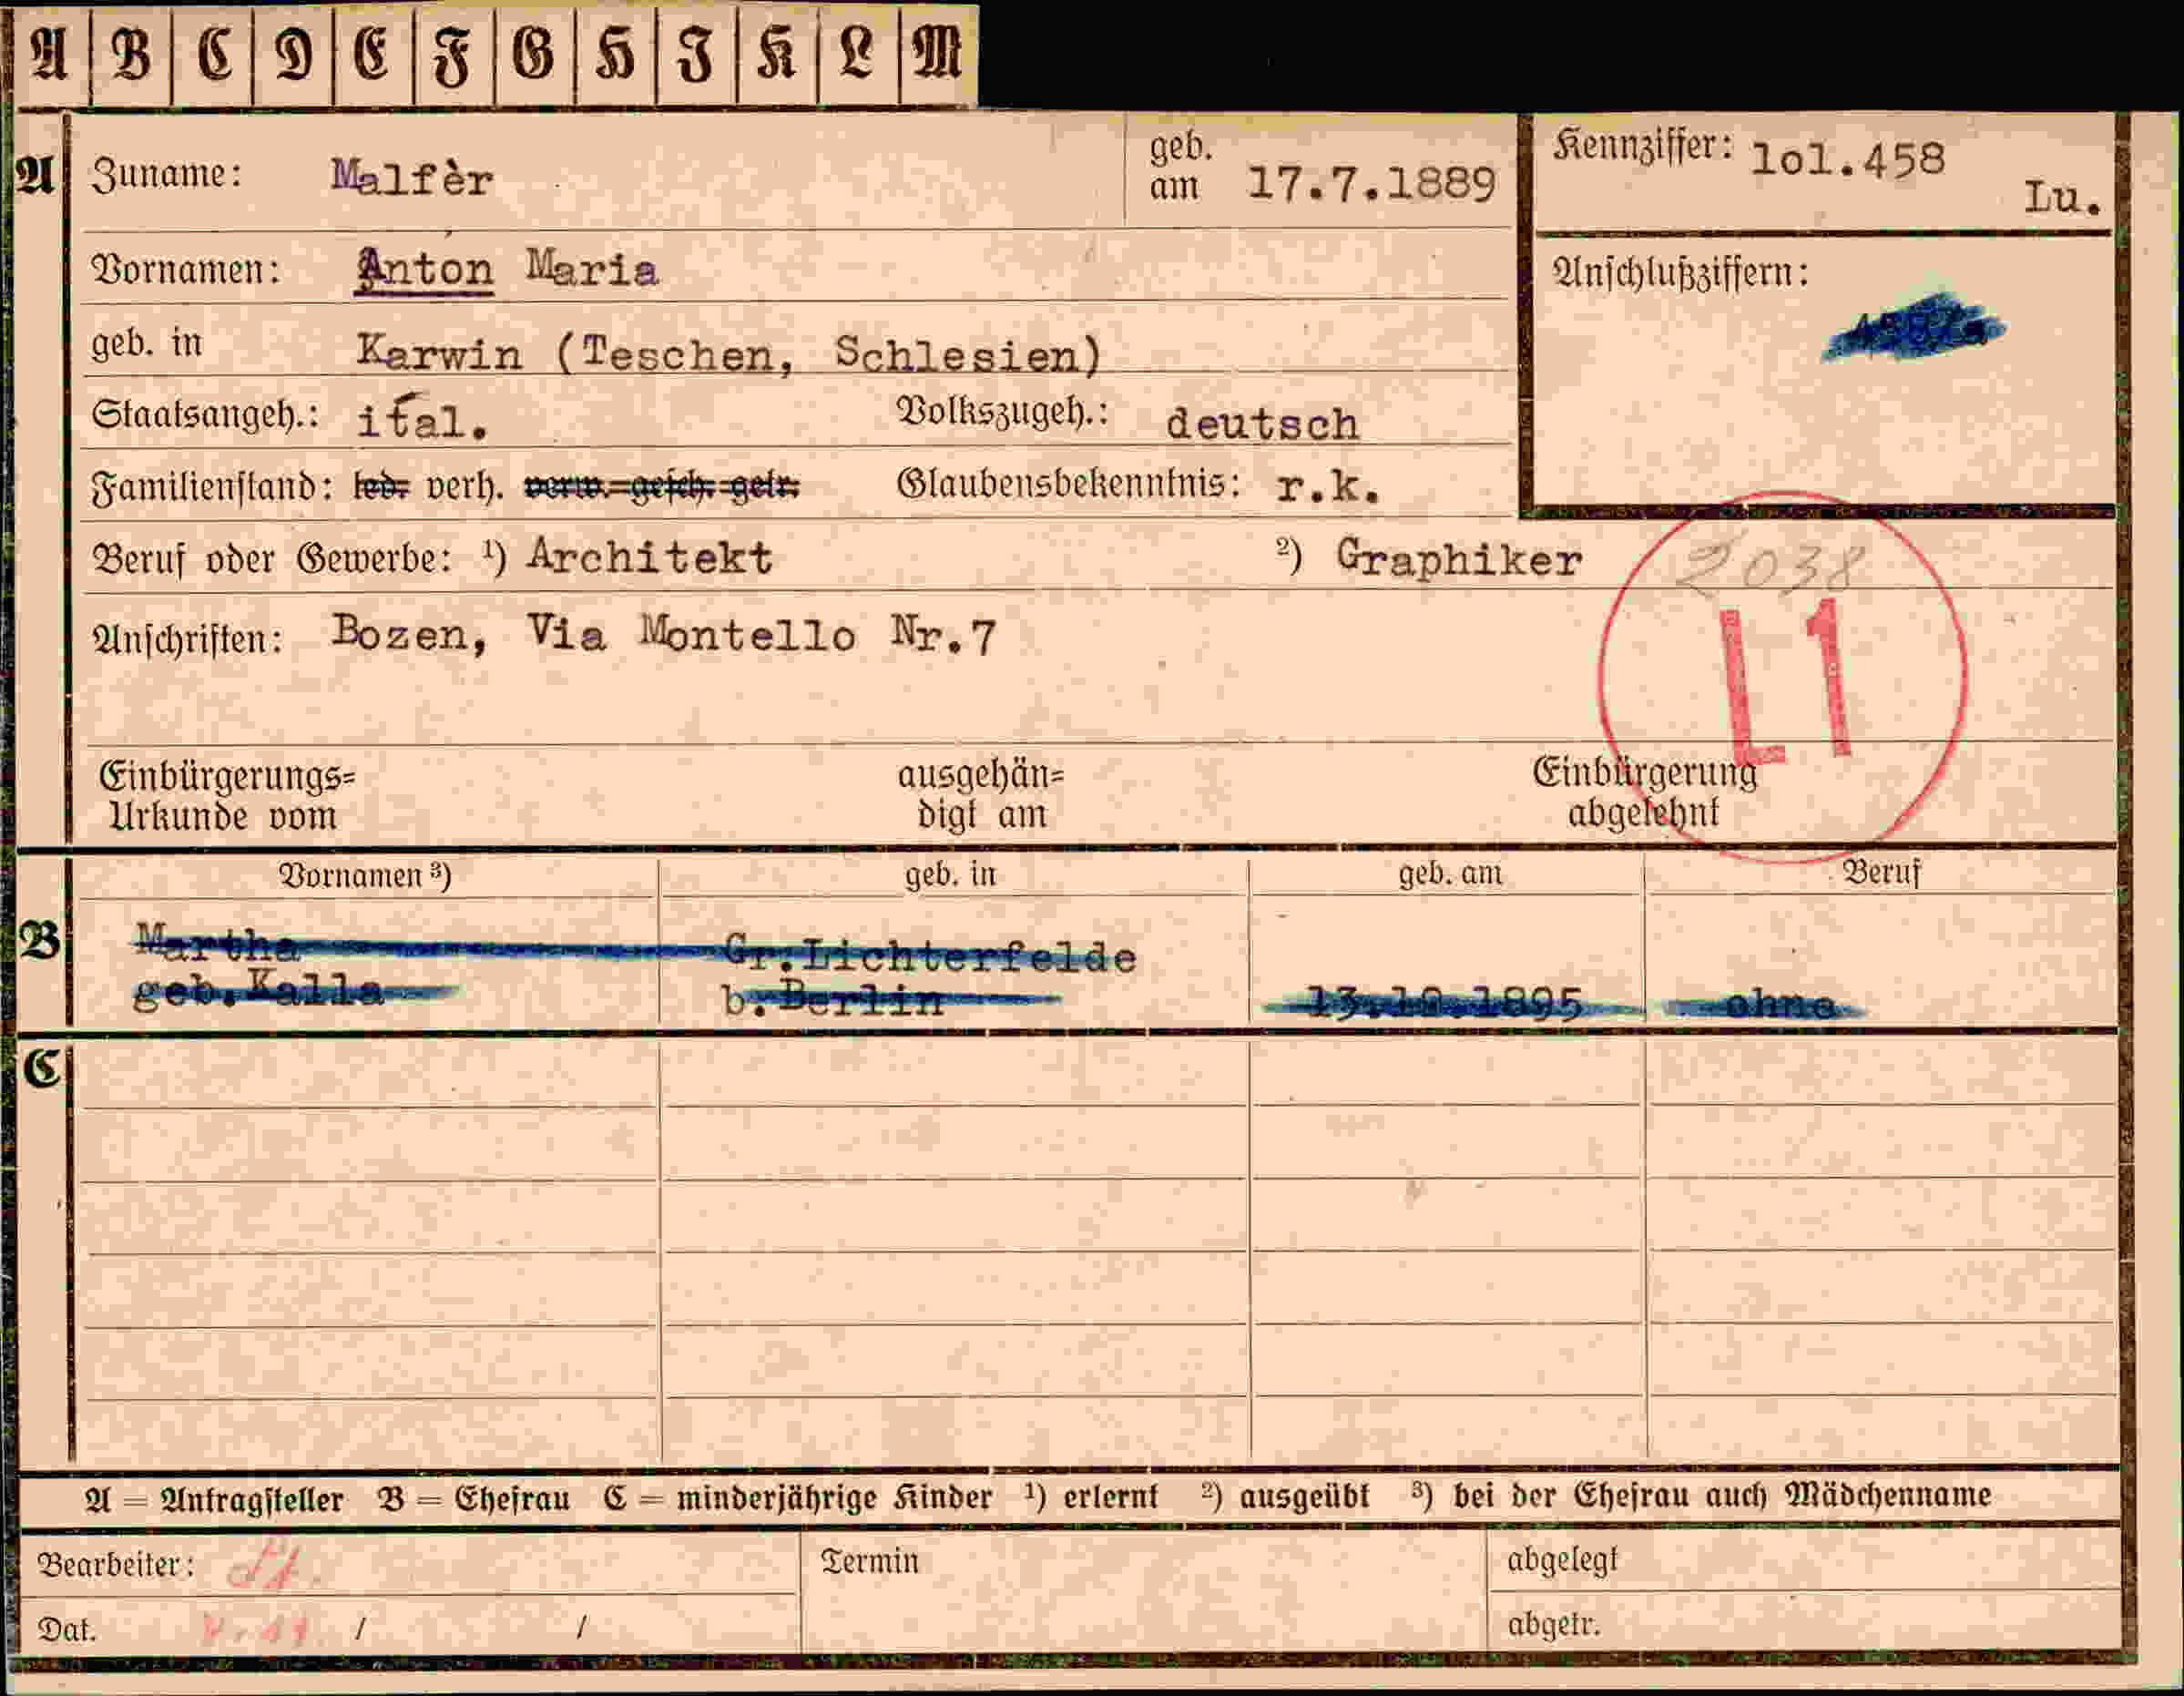 A B C D E F G H I K L M
A Zuname: Malfèr geb. am 17.7.1889 Kennziffer: lol.458 Lu.
Vornamen: Anton Maria Anschlußziffern:
geb. in Karwin (Teschen, Schlesien)
Staatsangeh.: ital. Volkszugeh.: deutsch
Familienstand: led. verh. verw. gesch. getr. Glaubensbekenntnis: r.k.
Beruf oder Gewerbe: ¹) Architekt ²) Graphiker 2038
Anschriften: Bozen, Via Montello Nr.7 L1
Einbürgerungs= ausgehän= Einbürgerung
Urkunde vom digt am abgelehnt
Vornamen ³) geb. in geb. am Beruf
B Martha Gr.Lichterfelde
geb.Kalla b.Berlin 13.10.1895 ohne
C
A = Antragsteller B = Ehefrau C = minderjährige Kinder ¹) erlernt ²) ausgeübt ³) bei der Ehefrau auch Mädchenname
Bearbeiter: Termin abgelegt
Dat. / / abgetr.